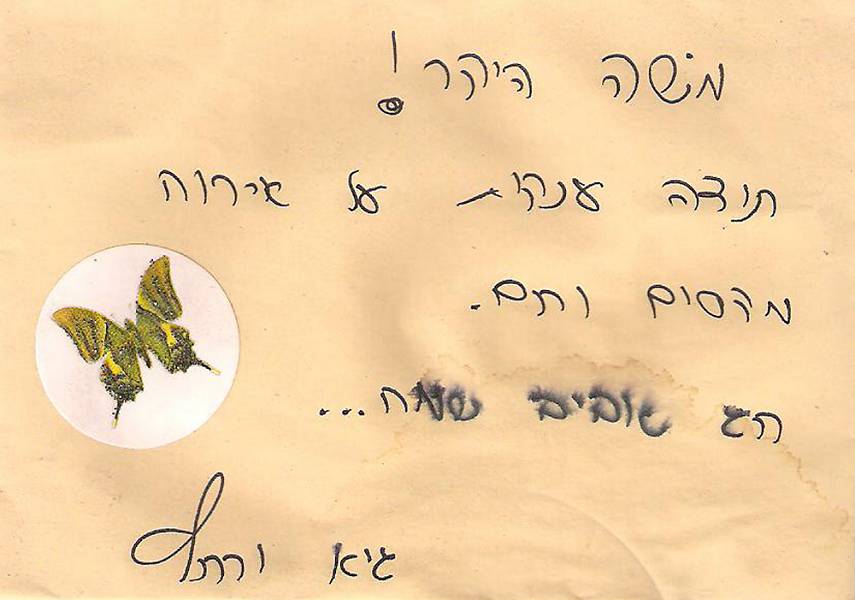 משה היקר!
תודה ענקית על אירוח
מקסים וחם.
חג שמח...
גיא ורחל